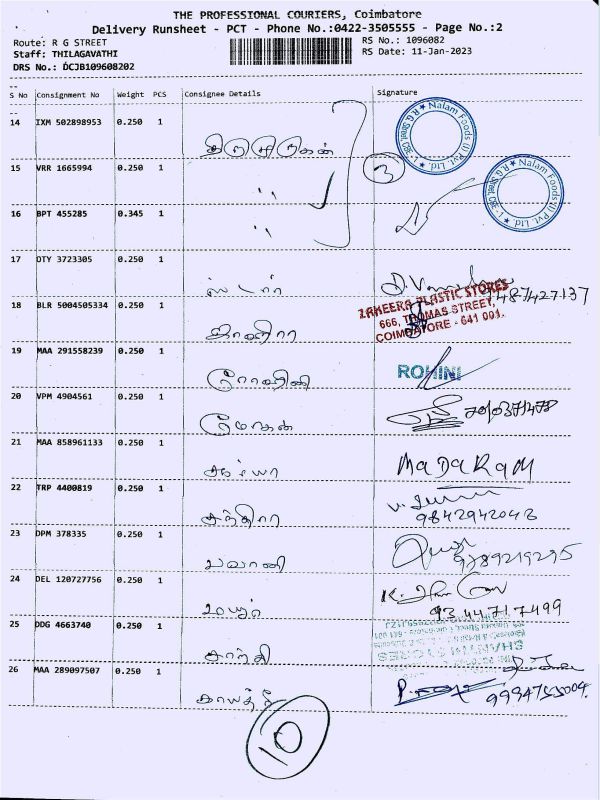 THE PROFESSIONAL COURIERS, Coimbatore
Delivery Runsheet - PCT - Phone No.:0422-3505555 - Page No.:2
Route: R G STREET
RS No.: 1096082
Staff: THILAGAVATHI
RS Date: 11-Jan-2023
DRS No.: DCJB109608202
S No Consignment No Weight PCS Consignee Details Signature
14 IXM 502898953 0.250 1
Nalam Foods (I) Pvt. Ltd.
R.G. Street, CBE-1
15 VRR 1665994 0.250 1 "
3
Nalam Foods (I) Pvt. Ltd.
R.G. Street, CBE-1
16 BPT 455285 0.345 1 "
17 OTY 3723305 0.250 1
ஸ்டார்
7487427137
ZAHEERA PLASTIC STORES
666, THOMAS STREET,
COIMBATORE - 641 001.
18 BLR 5004505334 0.250 1
ஜாஹீரா
19 MAA 291558239 0.250 1
ரோஹிணி
ROHINI
20 VPM 4904561 0.250 1
மோகன்
21 MAA 858961133 0.250 1
MADARAM
22 TRP 4400819 0.250 1
சந்திரா
9842942043
23 DPM 378335 0.250 1
பவானி
9789219295
24 DEL 120727756 0.250 1
மயூர்
9344717499
25 DDG 4663740 0.250 1
சாந்தி
SHANTHI STORES
26 MAA 289097507 0.250 1
காயத்ரி
9994755004
10